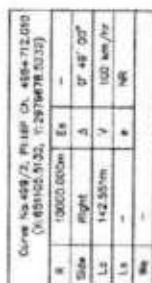 Curve No.499/2, PI HIP Ch. 495+712.050
(X:651105.5130, Y:2979678.5232)
R 10000.000m Es -
Side Right Δ 0° 49' 00"
Lc 142.551m V 100 km/hr
Ls - e NR
We -